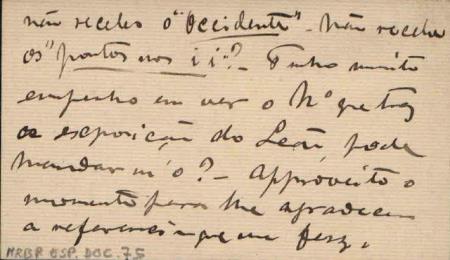 não recebo o "Occidente" - não recebe
os "pontos nos i i"? - Tenho muito
empenho em ver o Nº que traz
a exposição do Leão, pode
mandar m'o? - Approveito o
momento para lhe agradecer
a referencia que me fez.
MRBP. ESP. DOC. 75